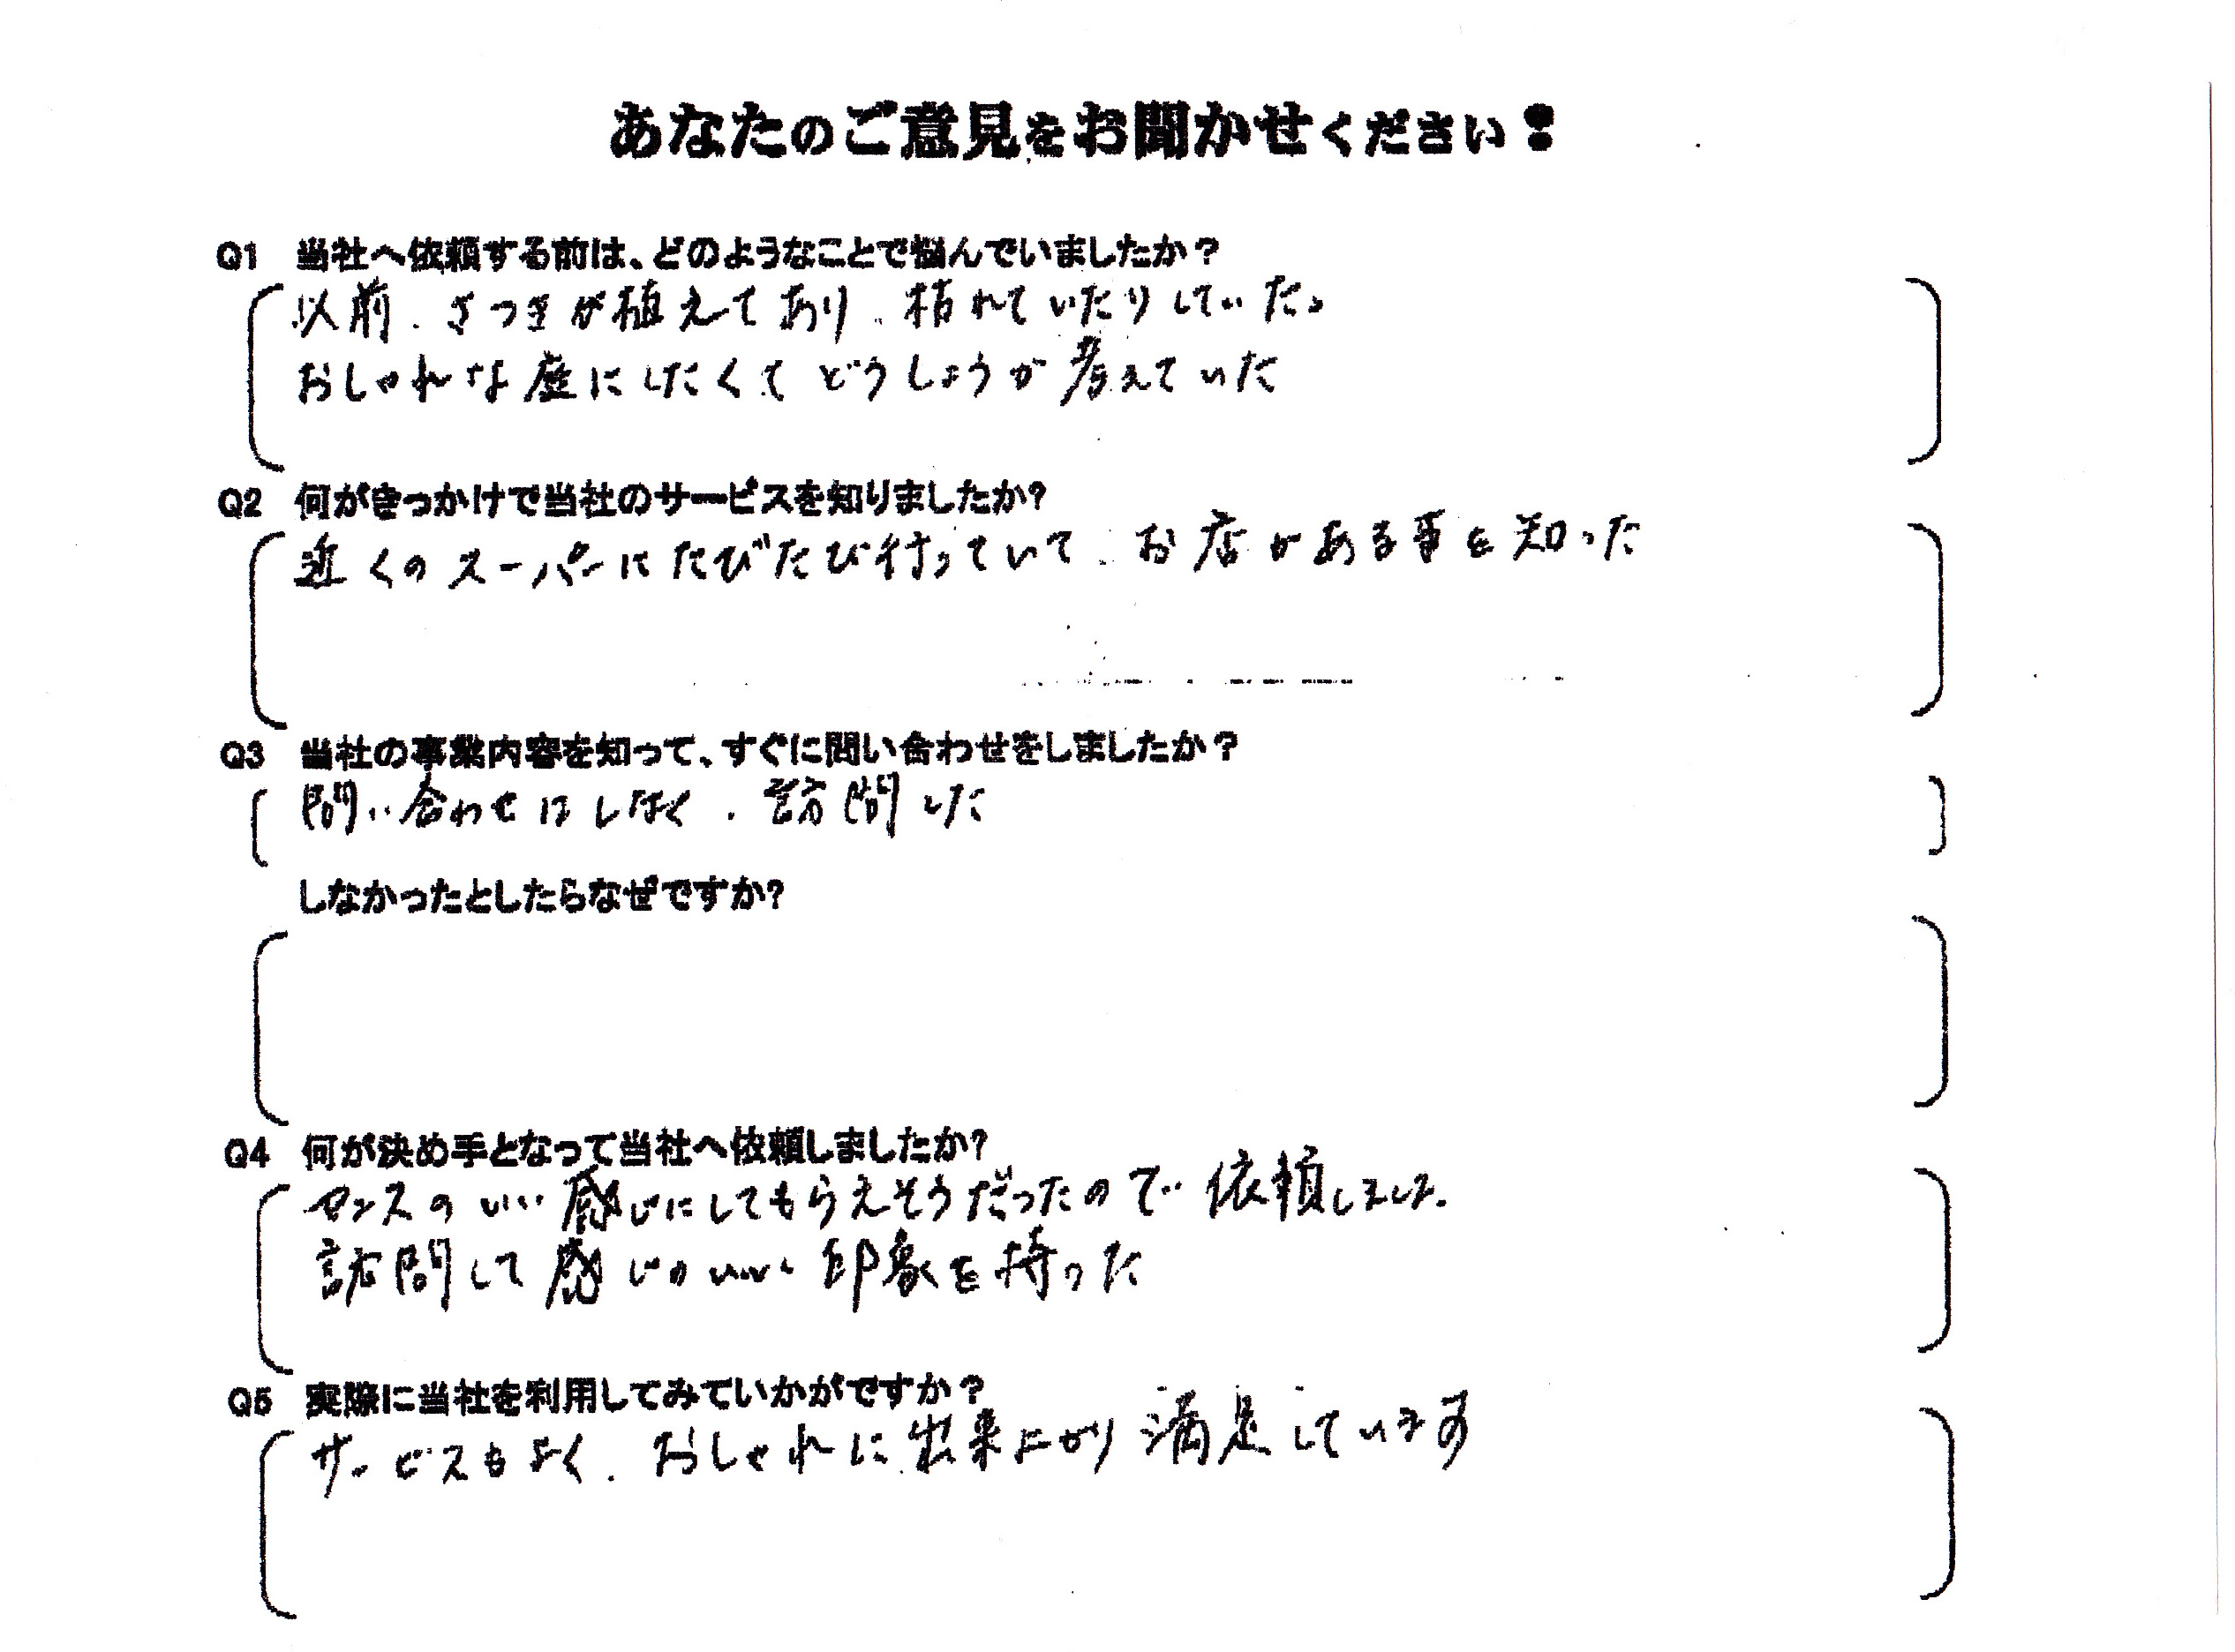 あなたのご意見をお聞かせください!
Q1 当社へ依頼する前は、どのようなことで悩んでいましたか?
以前、さつきが植えてあり、枯れていたりしていた。
おしゃれな庭にしたくてどうしょうか考えていた
Q2 何がきっかけで当社のサービスを知りましたか?
近くのスーパーにたびたび行っていて、お店がある事を知った
Q3 当社の事業内容を知って、すぐに問い合わせをしましたか?
問い合わせはしなく、訪問した
しなかったとしたらなぜですか?
Q4 何が決め手となって当社へ依頼しましたか?
センスのいい感じにしてもらえそうだったので依頼しました。
訪問して感じのいい印象を持った
Q5 実際に当社を利用してみていかがですか?
サービスもよく、おしゃれに出来上がり満足しています